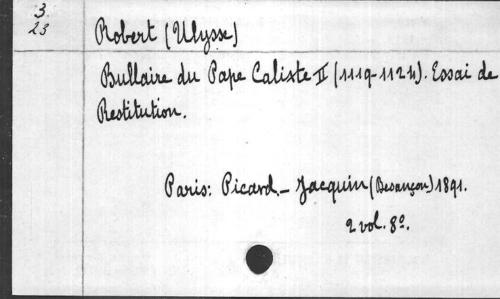 3
23
Robert (Ulysse)
Bullaire du Pape Calixte II (1119-1124). Essai de
Restitution.
Paris: Picard. - Jacquin (Besançon) 1891.
2 vol. 8º.